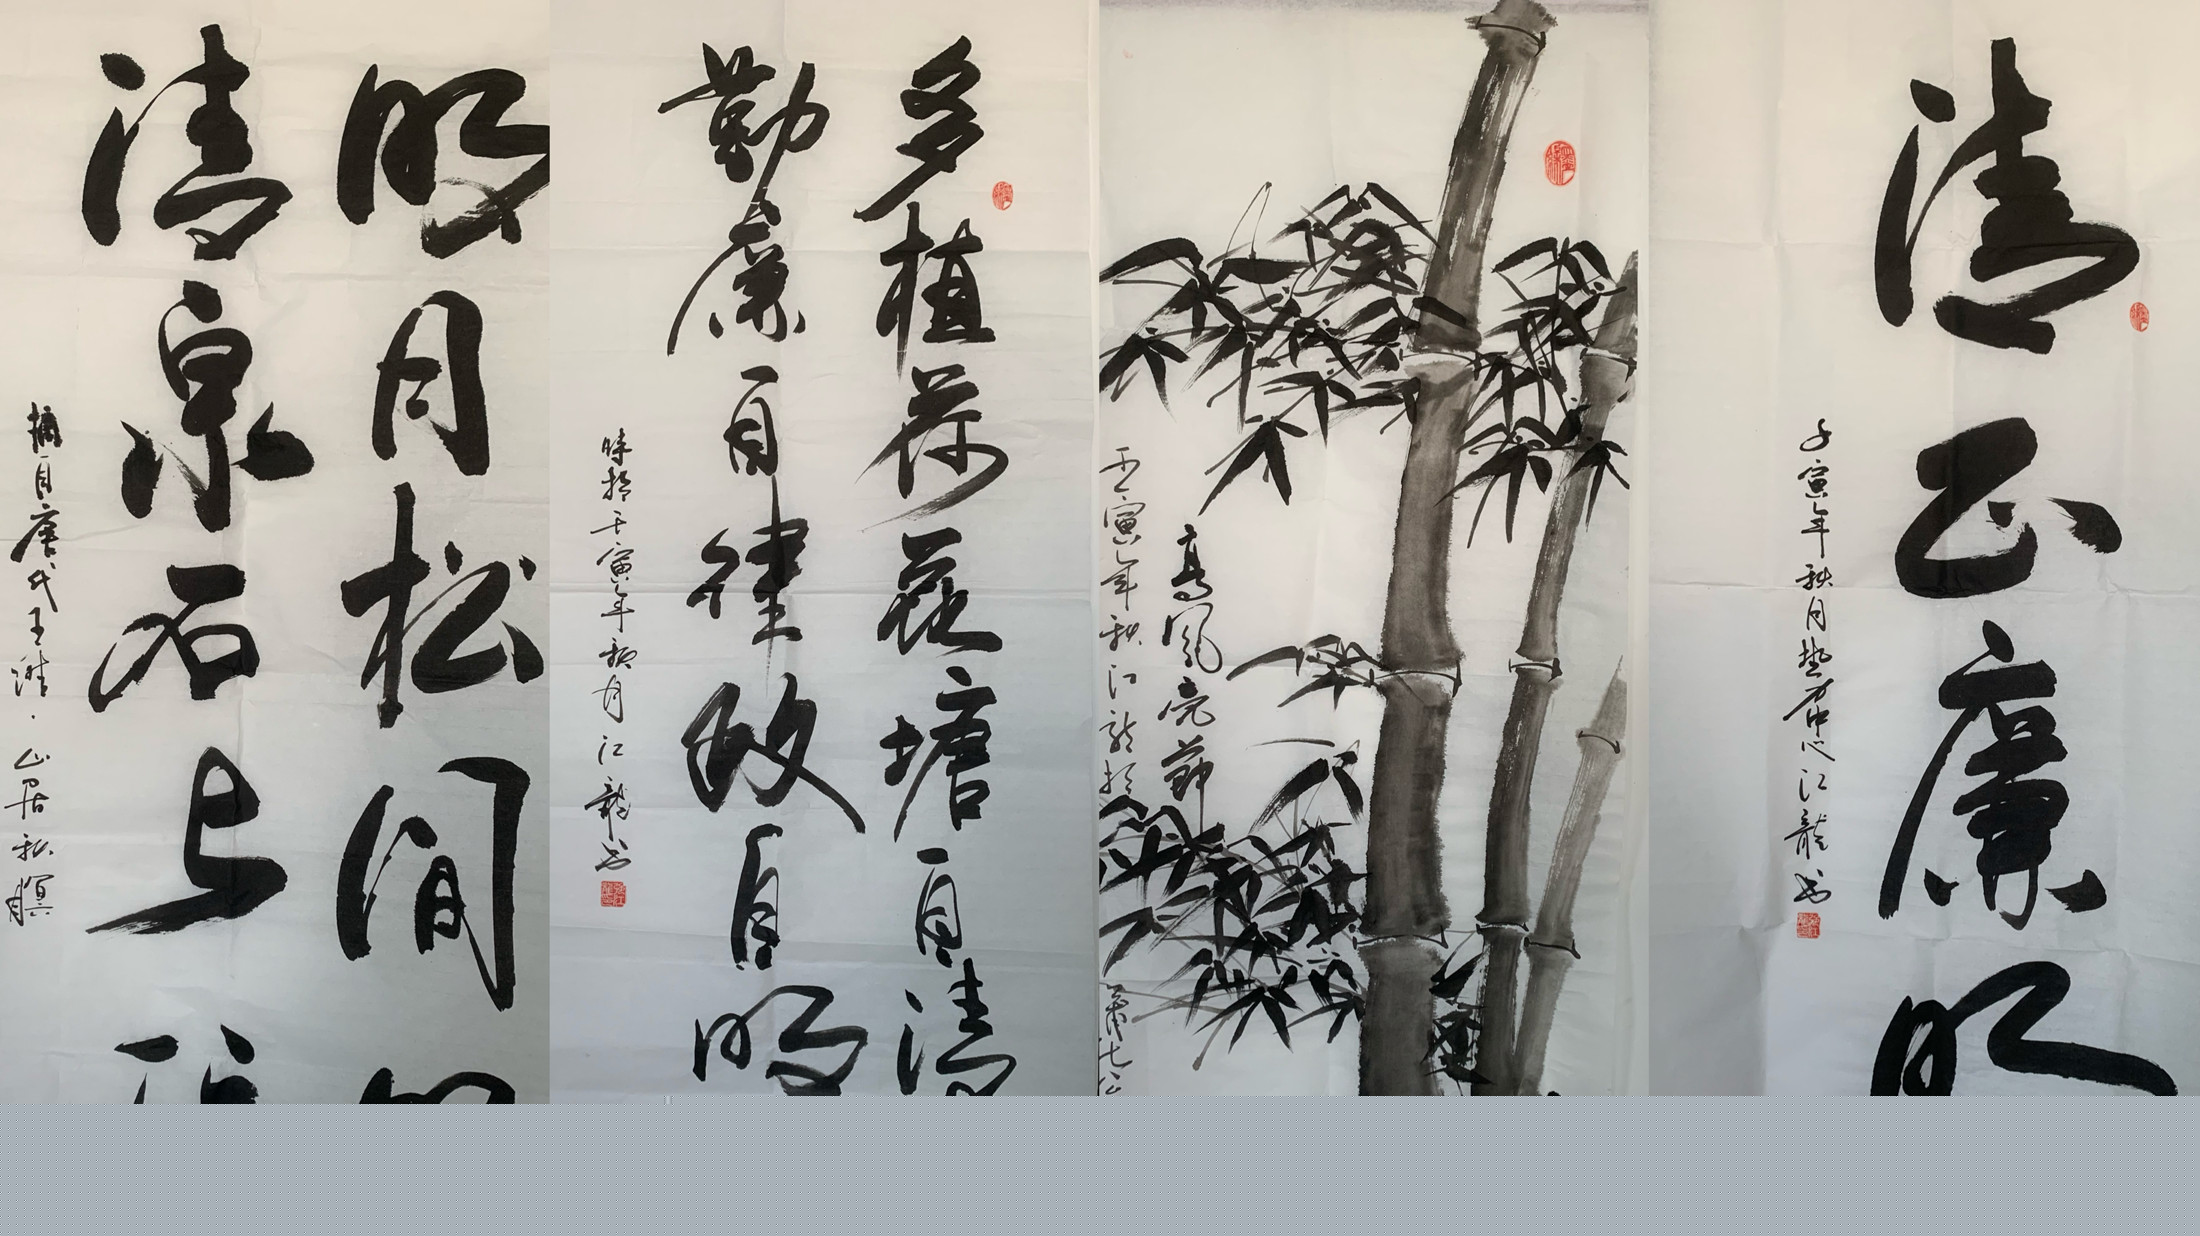 明月松间照
清泉石上流
摘自唐代王维·山居秋暝
多植荷花塘自清
勤廉自律政自明
时于壬寅年秋月江龙书
高风亮节
壬寅年秋江龙
清正廉明
壬寅年秋月
江龙书